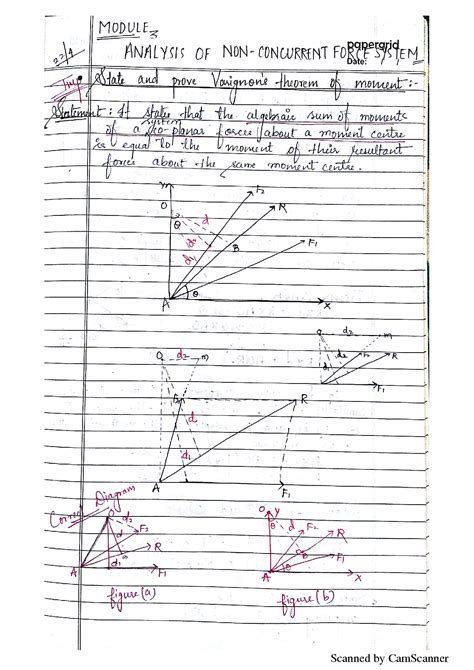 MODULE 3
papergrid
Date:
22/4
ANALYSIS OF NON-CONCURRENT FORCE SYSTEM
Imp
State and prove Varignon's theorem of moment:-
Statement: It states that the algebraic sum of moments
of a system co-planar forces about a moment centre
is equal to the moment of their resultant
forces about the same moment centre.
y
F2
R
O
θ
d
d2
B
d1
F1
θ
A
x
d2
m
d2
R
d1
F1
d2
m
R
d
d1
A
F1
Correct Diagram
O
d2
F2
d
R
d1
A
F1
figure (a)
O
y
θ
d
F2
R
B
F1
θ
A
x
figure (b)
Scanned by CamScanner